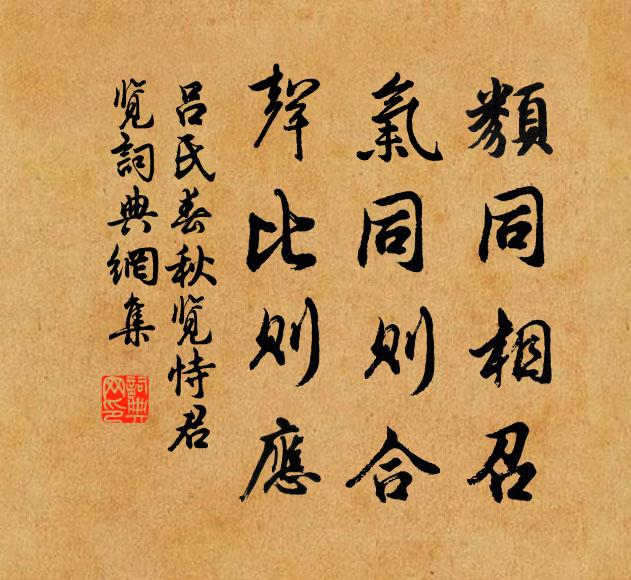 類同相召
氣同則合
聲比則應
吕氏春秋览恃君
览詞典網集
詞典
网印